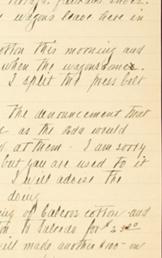 wagons leave here in
cotton this morning and
when the wagons come.
I split the press belt
the announcement that
as the would
at them. I am sorry
but you are used to it
I will advise the
doing
ing of cotton and
to for $
will made another in